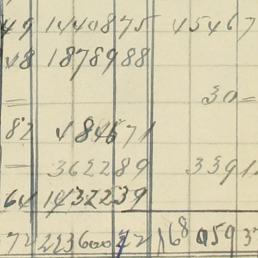 49 1440875 45467
48 1878988
= 30=
82 484671
— 362289 3391
64 1432239
72 22360072 168 059 37